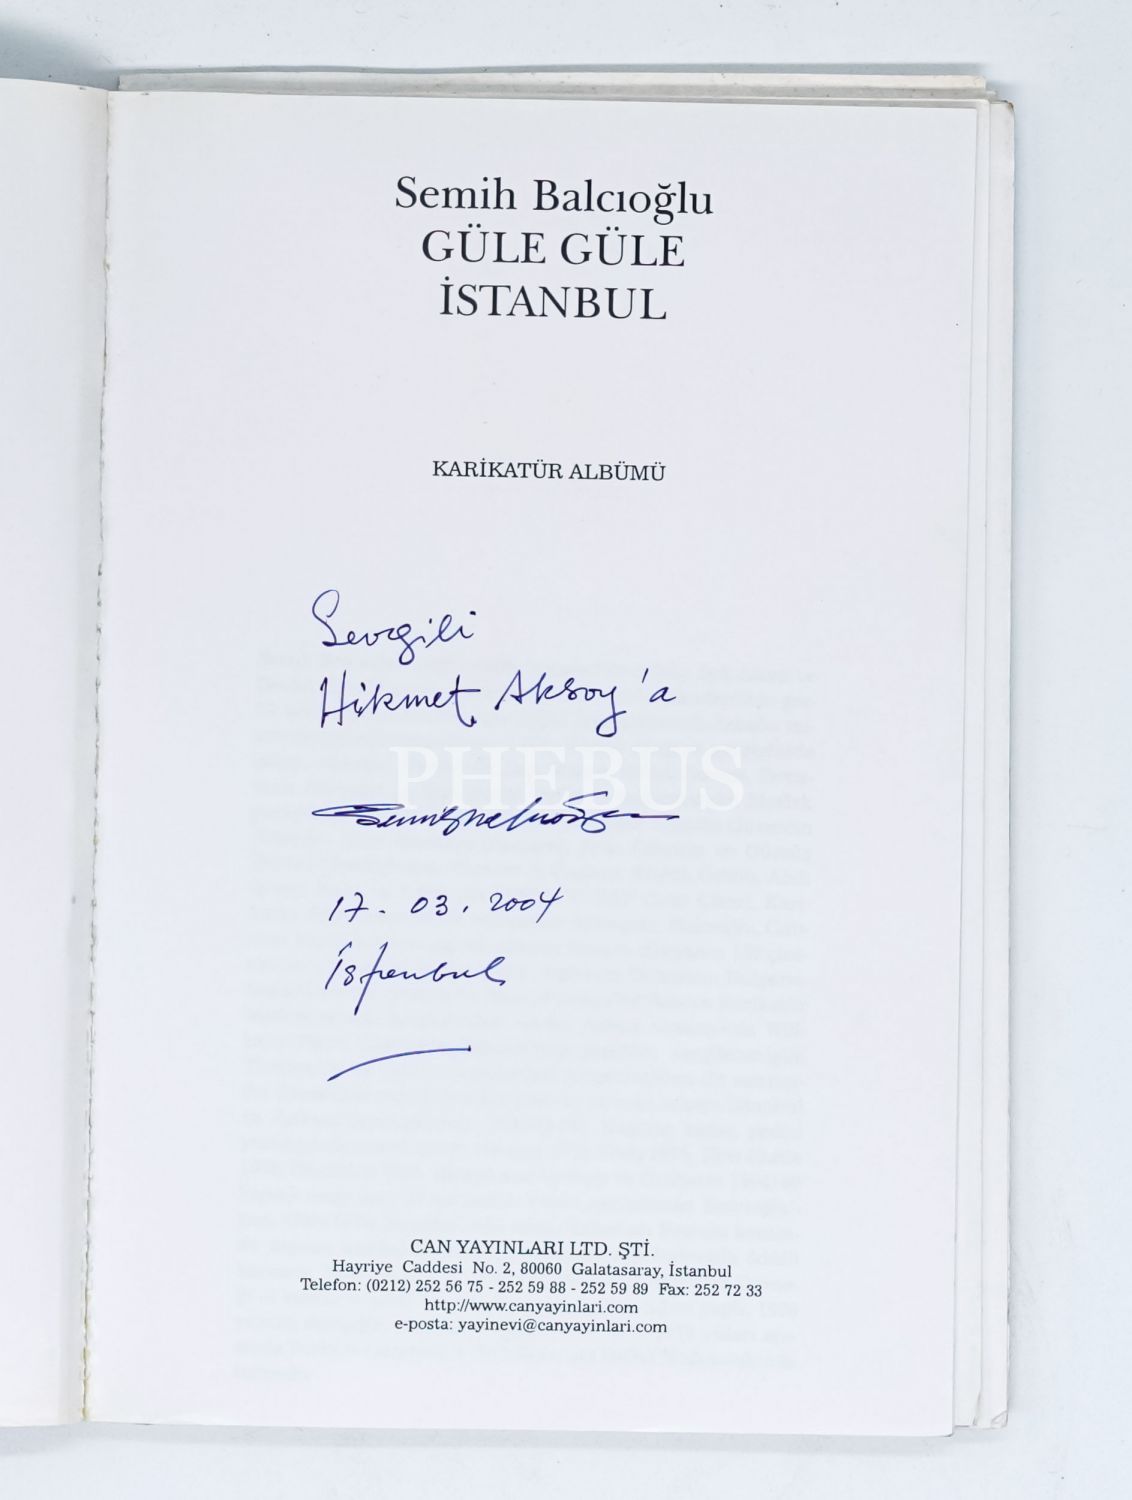 Semih Balcıoğlu
GÜLE GÜLE
İSTANBUL
KARİKATÜR ALBÜMÜ
Sevgili
Hikmet Aksoy'a
PHEBUS
17. 03. 2004
İstanbul
CAN YAYINLARI LTD. ŞTİ.
Hayriye Caddesi No. 2, 80060 Galatasaray, İstanbul
Telefon: (0212) 252 56 75 - 252 59 88 - 252 59 89 Fax: 252 72 33
http://www.canyayinlari.com
e-posta: yayinevi@canyayinlari.com